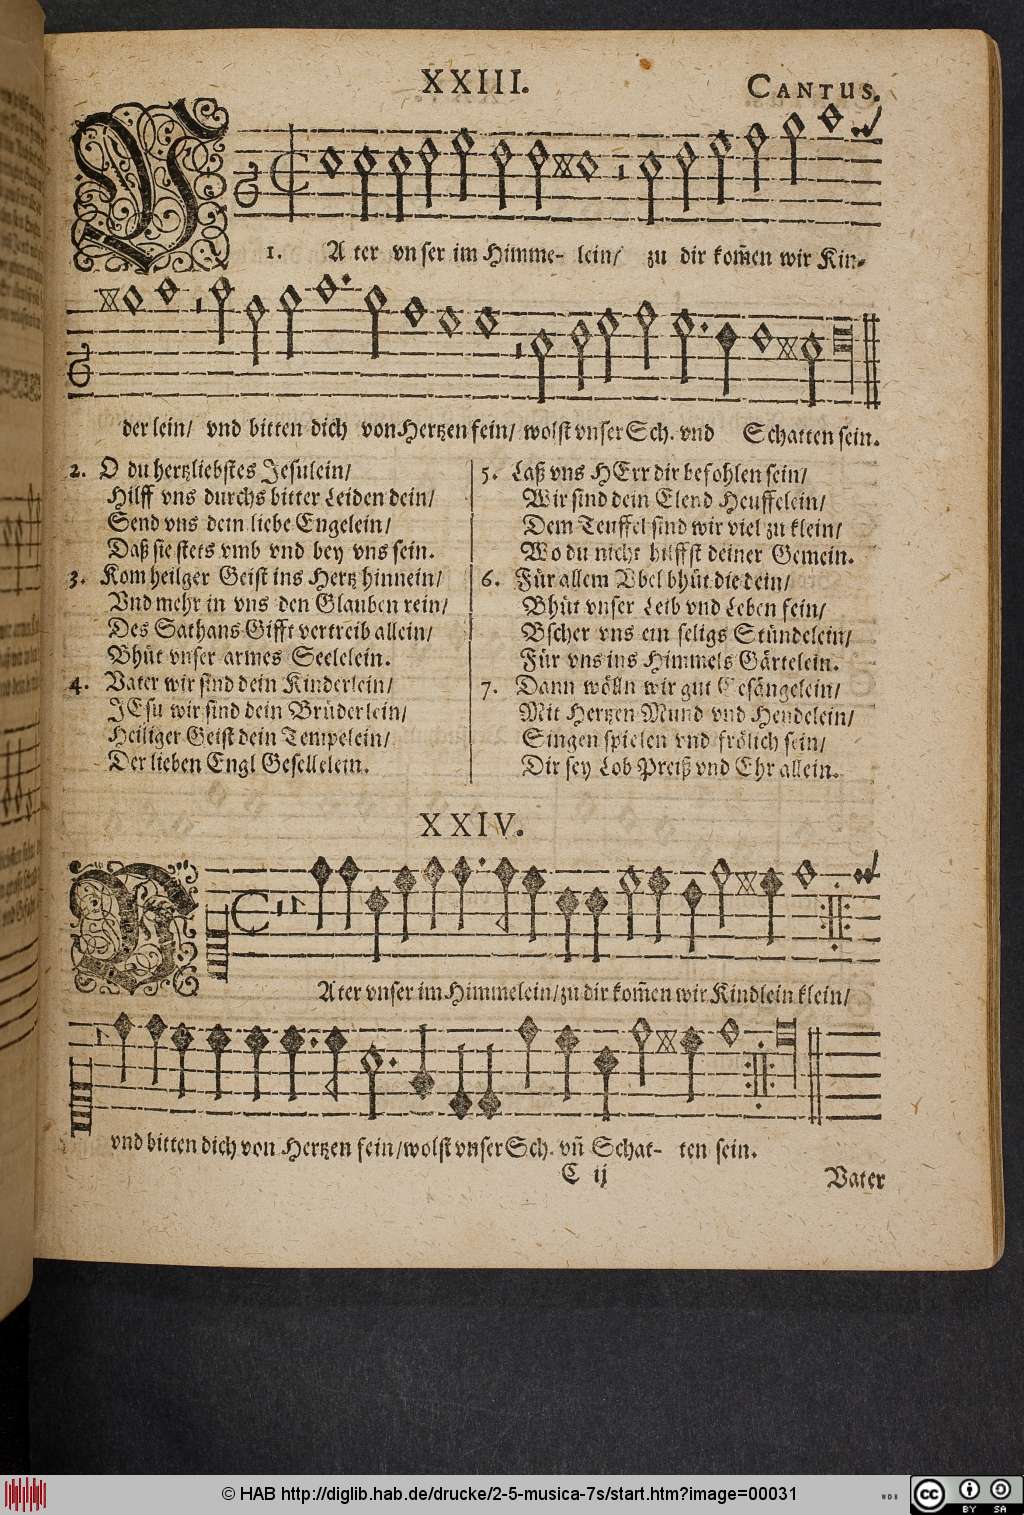 XXIII.
CANTUS.
V
1. Ater vnser im Himme- lein/ zu dir kom̃en wir Kin-
der lein/ vnd bitten dich von Hertzen fein/ wolst vnser Sch. vnd Schatten sein.
2. O du hertzliebstes Jesulein/
Hilff vns durchs bitter Leiden dein/
Send vns dein liebe Engelein/
Daß sie stets vmb vnd bey vns sein.
3. Kom heilger Geist ins Hertz hinnein/
Vnd mehr in vns den Glauben rein/
Des Sathans Gifft vertreib allein/
Bhüt vnser armes Seelelein.
4. Vater wir sind dein Kinderlein/
JEsu wir sind dein Brüderlein/
Heiliger Geist dein Tempelein/
Der lieben Engl Gesellelein.
5. Laß vns HErr dir befohlen sein/
Wir sind dein Elend Heuffelein/
Dem Teuffel sind wir viel zu klein/
Wo du nicht hilffst deiner Gemein.
6. Für allem Vbel bhüt die dein/
Bhüt vnser Leib vnd Leben fein/
Bscher vns ein seligs Stündelein/
Für vns ins Himmels Gärtelein.
7. Dann wölln wir gut Gesängelein/
Mit Hertzen Mund vnd Hendelein/
Singen spielen vnd frölich sein/
Dir sey Lob Preiß vnd Ehr allein.
XXIV.
V
Ater vnser im Himmelein/zu dir kom̃en wir Kindlein klein/
vnd bitten dich von Hertzen fein/wolst vnser Sch. vn̄ Schat- ten sein.
C ij
Vater
© HAB http://diglib.hab.de/drucke/2-5-musica-7s/start.htm?image=00031
WDB
cc BY SA